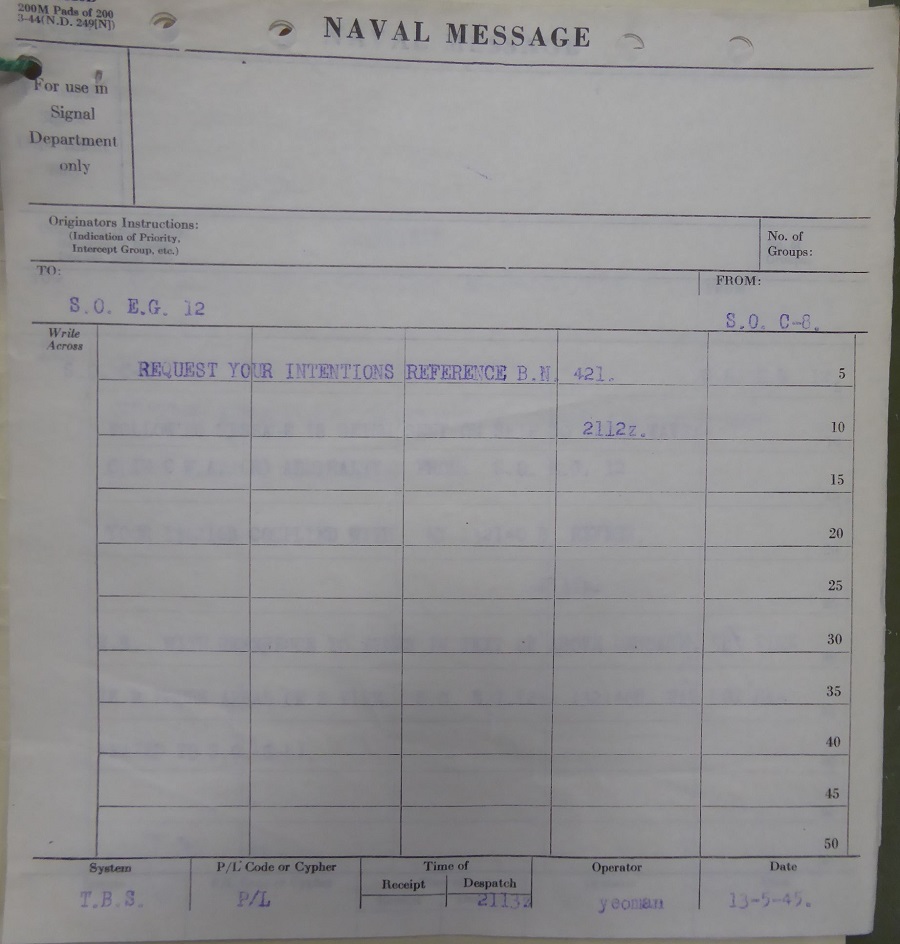 200M Pads of 200
3-44(N.D. 249[N])
NAVAL MESSAGE
For use in
Signal
Department
only
Originators Instructions:
(Indication of Priority,
Intercept Group, etc.)
No. of
Groups:
TO:
FROM:
S.O. E.G. 12
S.O. C-8.
Write
Across
REQUEST YOUR INTENTIONS REFERENCE B.N. 421.
5
2112z.
10
15
20
25
30
35
40
45
50
System
P/L Code or Cypher
Time of
Receipt
Despatch
Operator
Date
T.B.S.
P/L
2113z
yeoman
13-5-45.